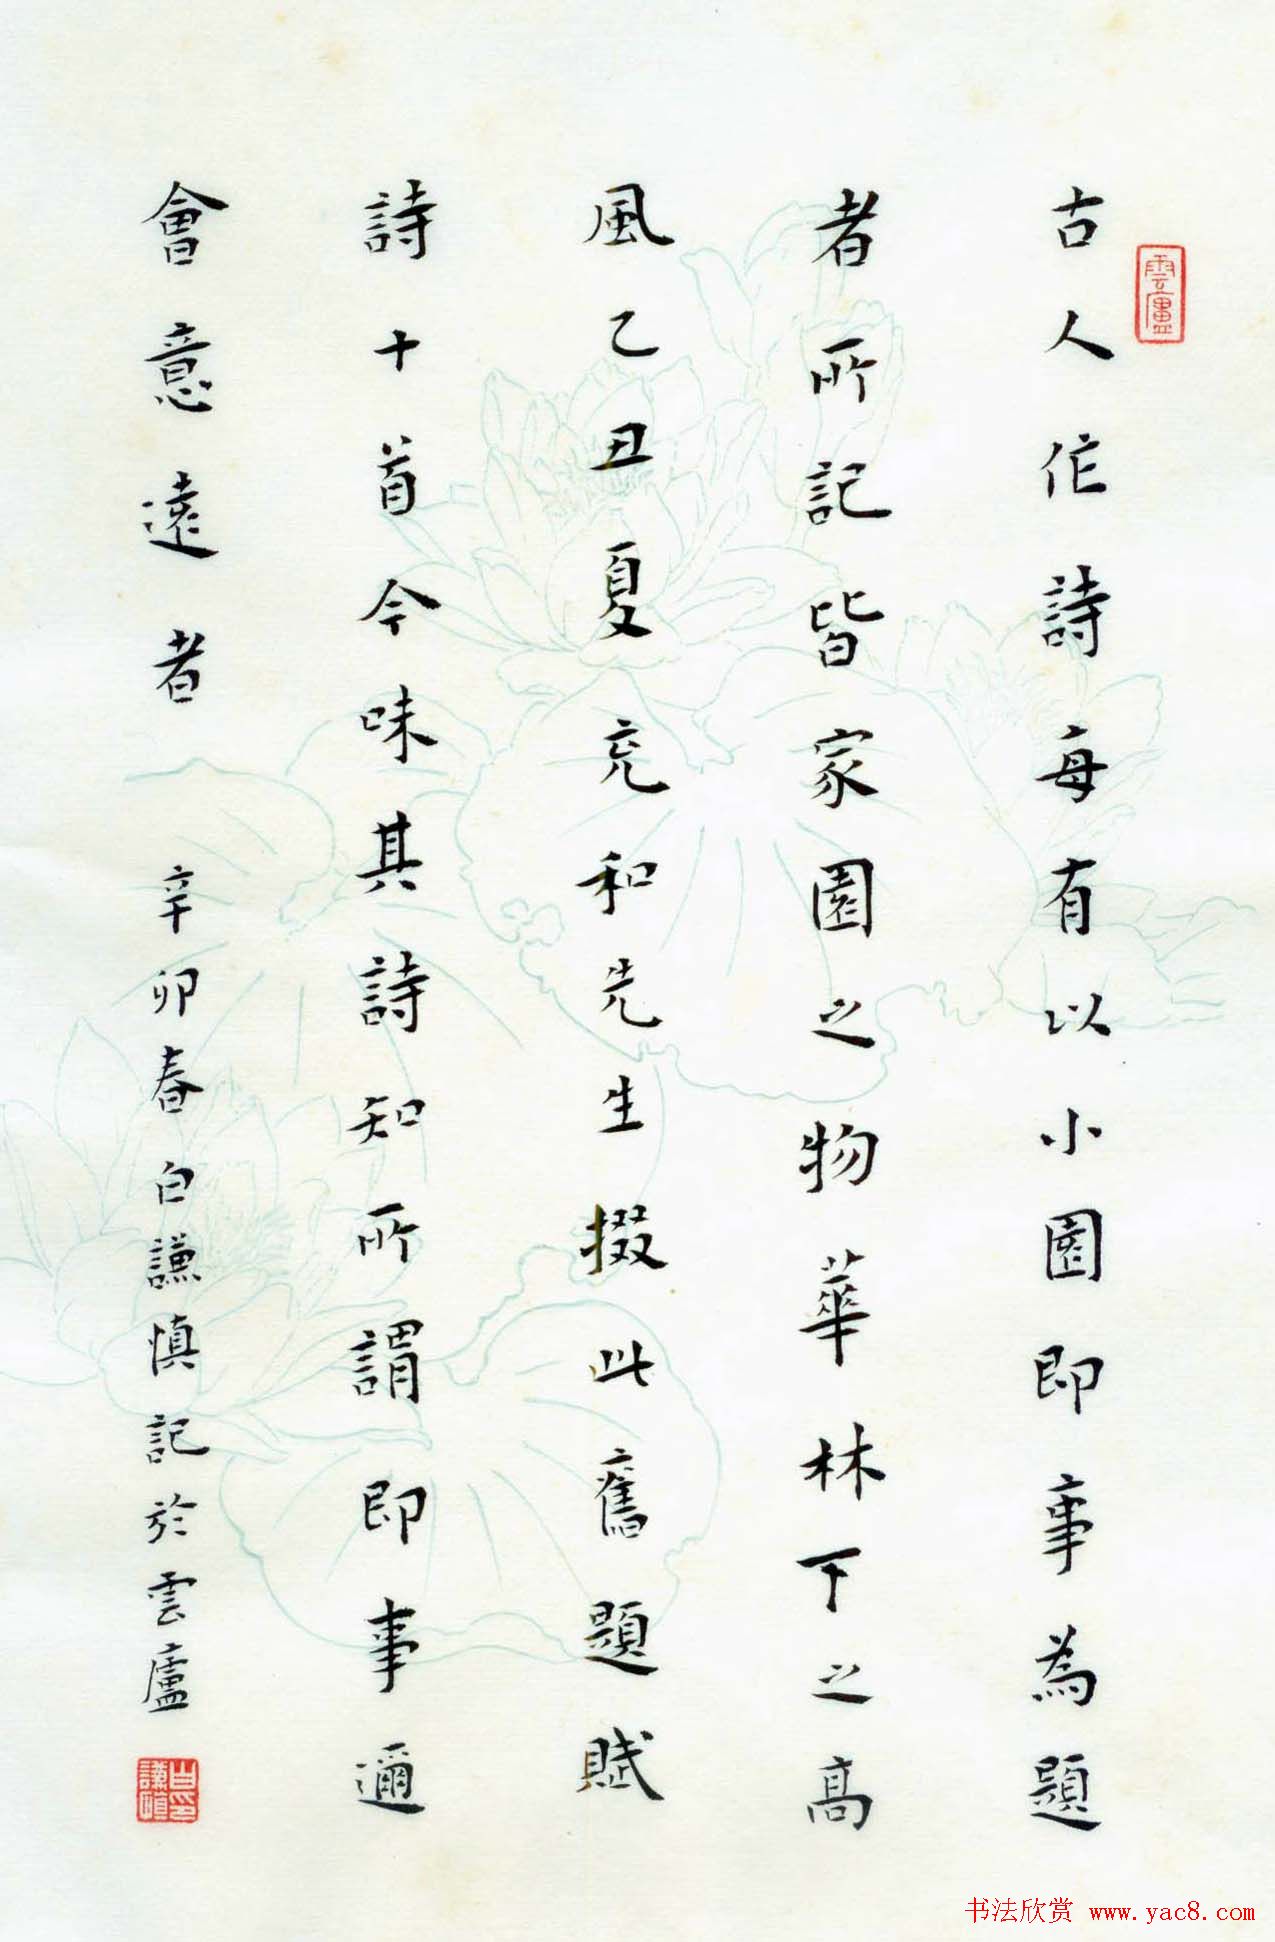 雲廬
古人作詩每有以小園即事為題
者所記皆家園之物華林下之高
風乙丑夏充和先生掇此舊題賦
詩十首今味其詩知所謂即事邇
會意遠者
辛卯春白謙慎記於雲廬
白謙慎印
书法欣赏 www.yac8.com